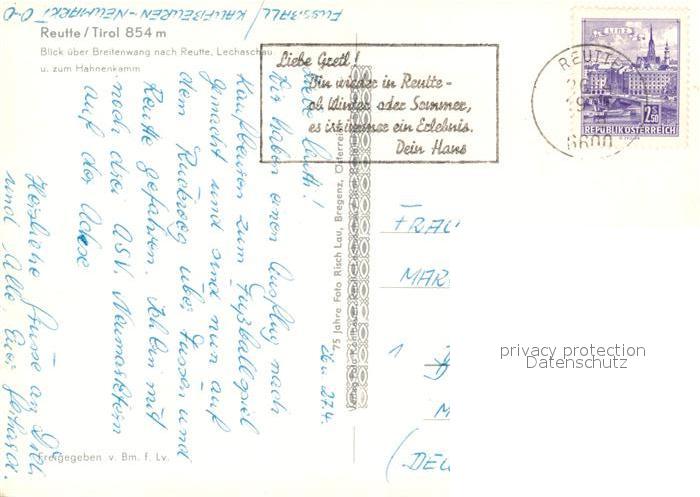 FUSSBALL / KAUFBEUREN - NEUMARKT 0-0
Reutte / Tirol 854 m
Blick über Breitenwang nach Reutte, Lechaschau
u. zum Hahnenkamm
Liebe Gretl!
Bin wieder in Reutte -
ob Winter oder Sommer,
es ist immer ein Erlebnis.
Dein Hans
REUTTE
6600
LINZ
2S50
REPUBLIK ÖSTERREICH
26. u. 27.4.
Wir haben einen Ausflug nach
Kaufbeuren zum Fußballspiel
gemacht und sind nun auf
dem Rückweg über Füssen und
Reutte gefahren. Ich bin mit
noch drei ASV. Neumarktern
auf der Achse
Herzliche Grüsse an Dich
und Alle, Euer
75 Jahre Foto Risch Lau, Bregenz, Österreich
FRAU
MAR
1
M
(DEU
Freigegeben v. Bm. f. Lv.
privacy protection
Datenschutz